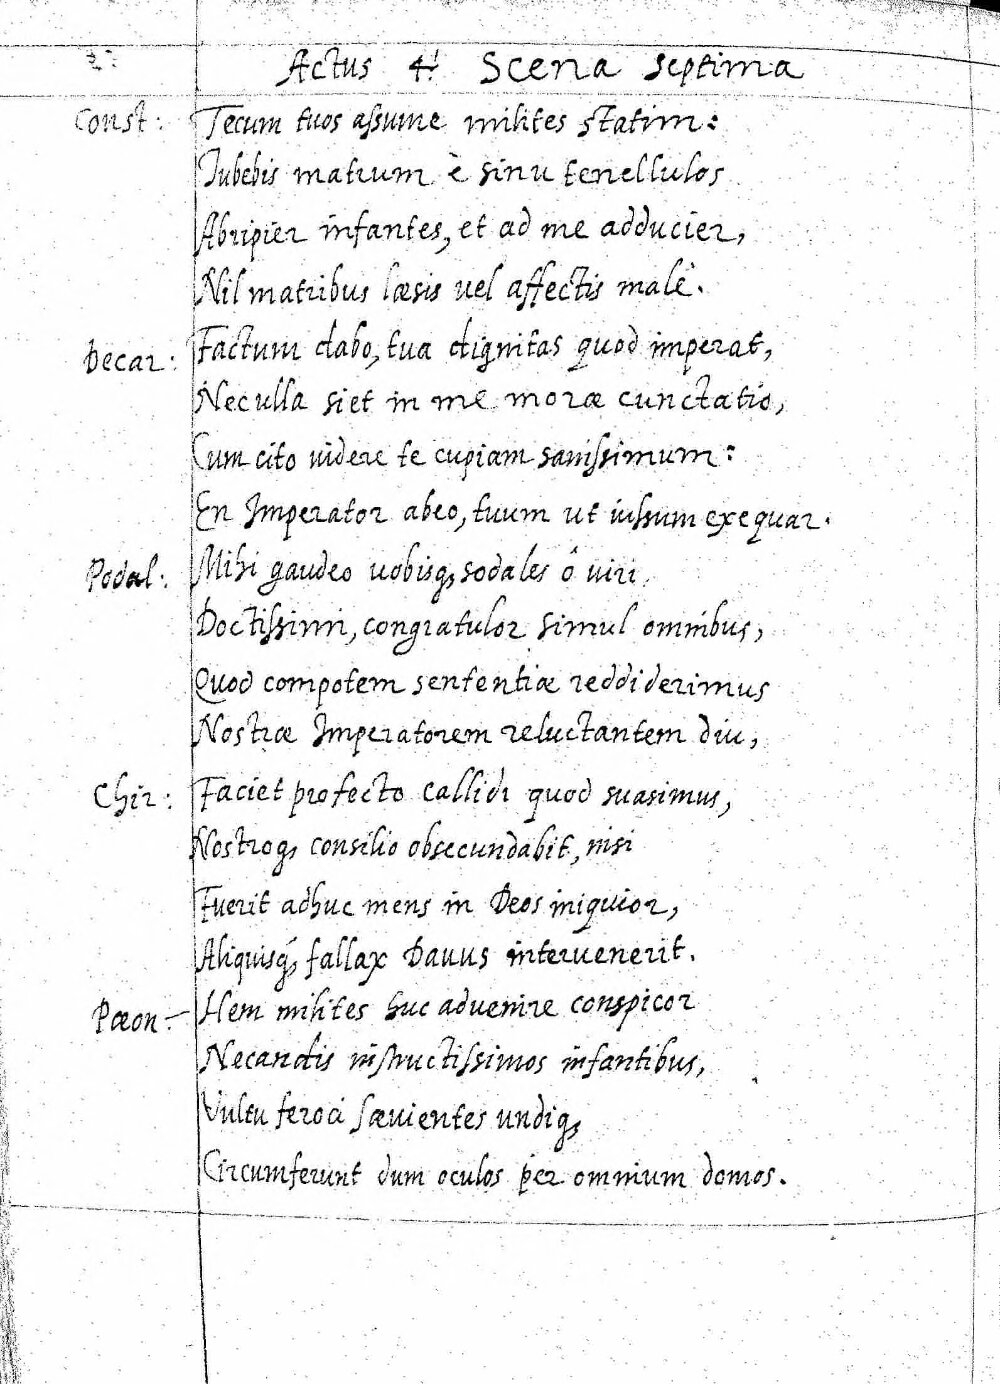 Actus 4.i Scena septima
Const: Tecum tuos assume milites statim:
Iubebis matrum è sinu tenellulos
Abripier infantes, et ad me adducier,
Nil matribus læsis vel affectis malê.
Decar: Factum dabo, tua dignitas quod imperat,
Nec ulla siet in me moræ cunctatio,
Cum cito uidere te cupiam sanissimum:
En Imperator abeo, tuum ut iussum exequar.
Podal: Mihi gaudeo uobisq, sodales ô uiri
Doctissimi, congratulor simul omnibus,
Quod compotem sententiæ reddiderimus
Nostræ Imperatorem reluctantem diu,
Chir: Faciet profecto callidi quod suasimus,
Nostroq, consilio obsecundabit, nisi
Fuerit adhuc mens in Deos iniquior,
Aliquisq́, fallax Dauus interuenerit.
Pæon: Hem milites huc aduenire conspicor
Necandis instructissimos infantibus,
Vultu feroci sæuientes undiq,
Circumferunt dum oculos per omnium domos.